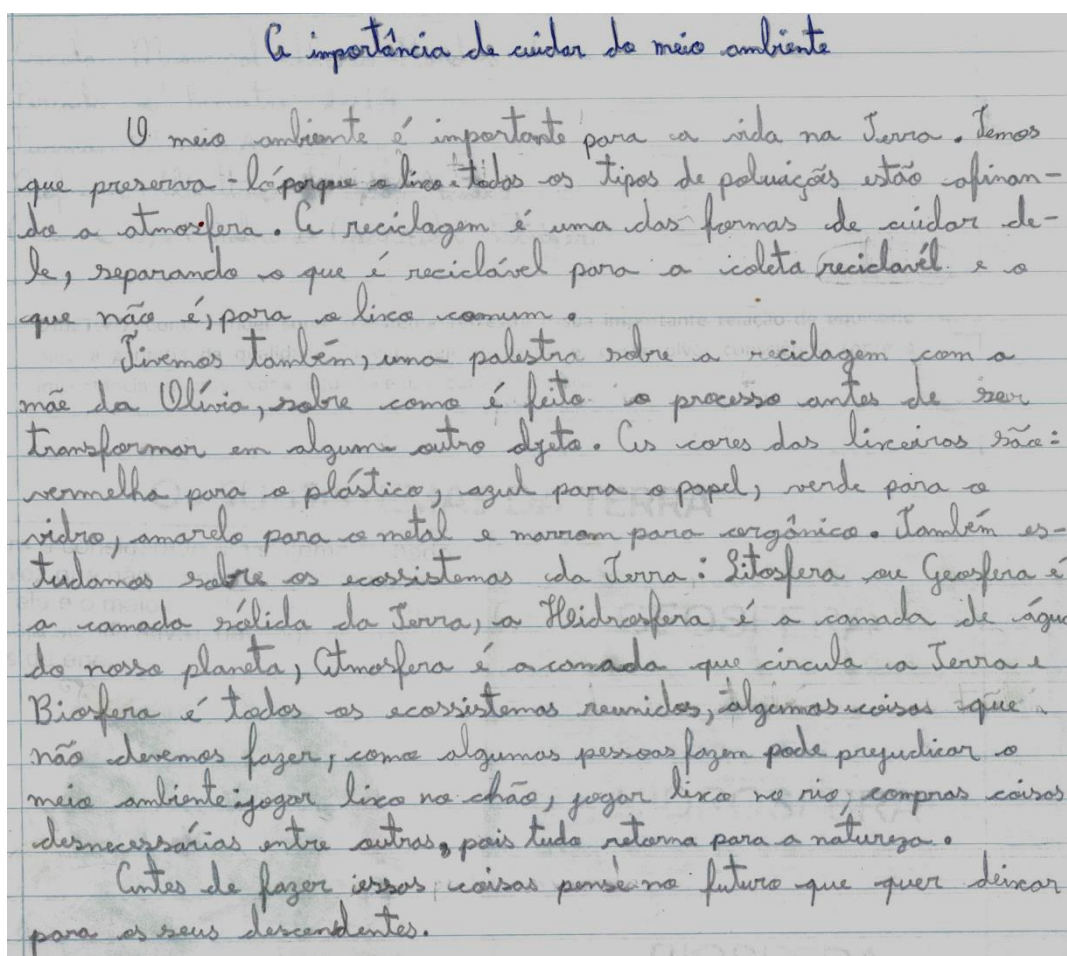 A importância de cuidar do meio ambiente
O meio ambiente é importante para a vida na Terra. Temos
que preserva-lo porque o lixo e todos os tipos de poluições estão afinan-
do a atmosfera. A reciclagem é uma das formas de cuidar de-
le, separando o que é reciclável para a coleta reciclavél e o
que não é, para o lixo comum.
Tivemos também, uma palestra sobre a reciclagem com a
mãe da Olívia, sobre como é feito o processo antes de ser
transformar em algum outro objeto. As cores das lixeiras são:
vermelha para o plástico, azul para o papel, verde para o
vidro, amarelo para o metal e marrom para orgânico. Também es-
tudamos sobre os ecossistemas da Terra: Litosfera ou Geosfera é
a camada sólida da Terra, a Heidrosfera é a camada de água
do nosso planeta, Atmosfera é a camada que circula a Terra e
Biosfera é todos os ecossistemas reunidos, algumas coisas que
não devemos fazer, como algumas pessoas fazem pode prejudicar o
meio ambiente: jogar lixo no chão, jogar lixo no rio, compras coisas
desnecessárias entre outras, pois tudo retorna para a natureza.
Antes de fazer essas coisas pense no futuro que quer deixar
para os seus descendentes.